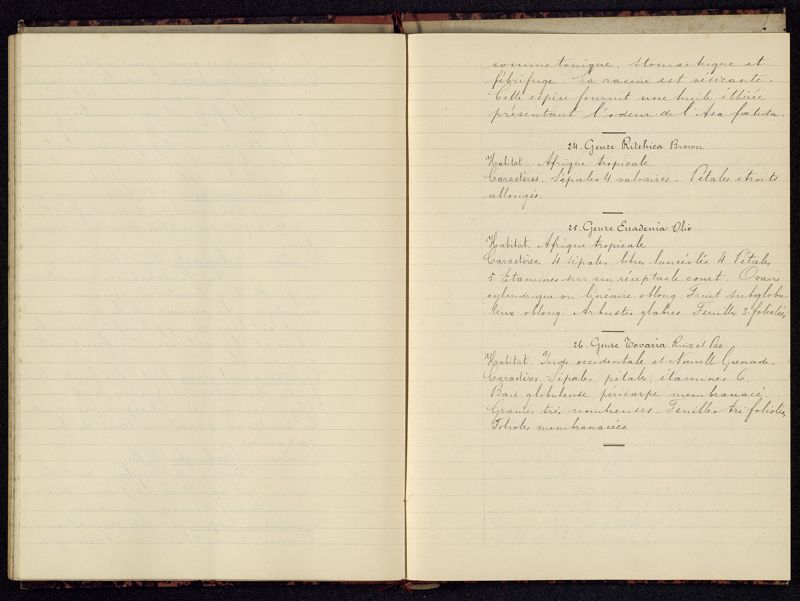 comme tonique, stomachique et
fébrifuge. La racine est vésicante.
Cette espèce fournit une huile éthérée
présentant l'odeur de l'Asa fœtida.
24. Genre Ritchica Brown
Habitat. Afrique tropicale
Caractères. Sépales 4 valvaires. Pétales étroits
allongés.
25. Genre Euadenia Oliv
Habitat. Afrique tropicale
Caractères. 4 sépales libres lancéolés 4 Pétales
5 Etamines sur un réceptacle court. Ovaire
cylindrique ou linéaire oblong. Fruit subglobu-
leux oblong. Arbustes glabres. Feuilles 3-foliolées
26. Genre Tovaria Ruiz et Pav.
Habitat. Inde occidentale et Nouvelle Grenade.
Caractères. Sépales, pétales, étamines 6.
Baie globuleuse, péricarpe membranacé.
Graines très nombreuses. Feuilles trifoliolées,
Folioles membranacées.